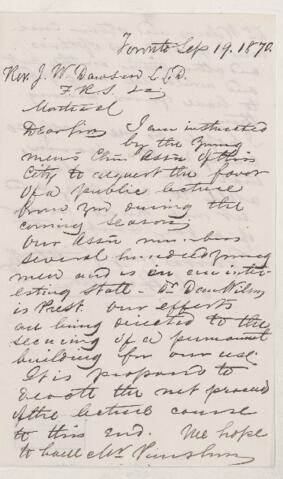 Toronto Sep 19. 1870.
Rev. J. W. Dawson L.L.D.
F.R.S. &c
Montreal
Dear Sir I am instructed
by the Young
men's Chn. Assn of this
City to request the favor
of a public lecture
from you during the
coming season,
Our Assn numbers
several hundred young
men and is in an inter-
esting state - Dr Dan Wilson
is Prest. our efforts
are being directed to the
securing of a permanent
building for our use.
It is proposed to
devote the net proceeds
of the lecture course
to this end. We hope
to have Mr Punshon,